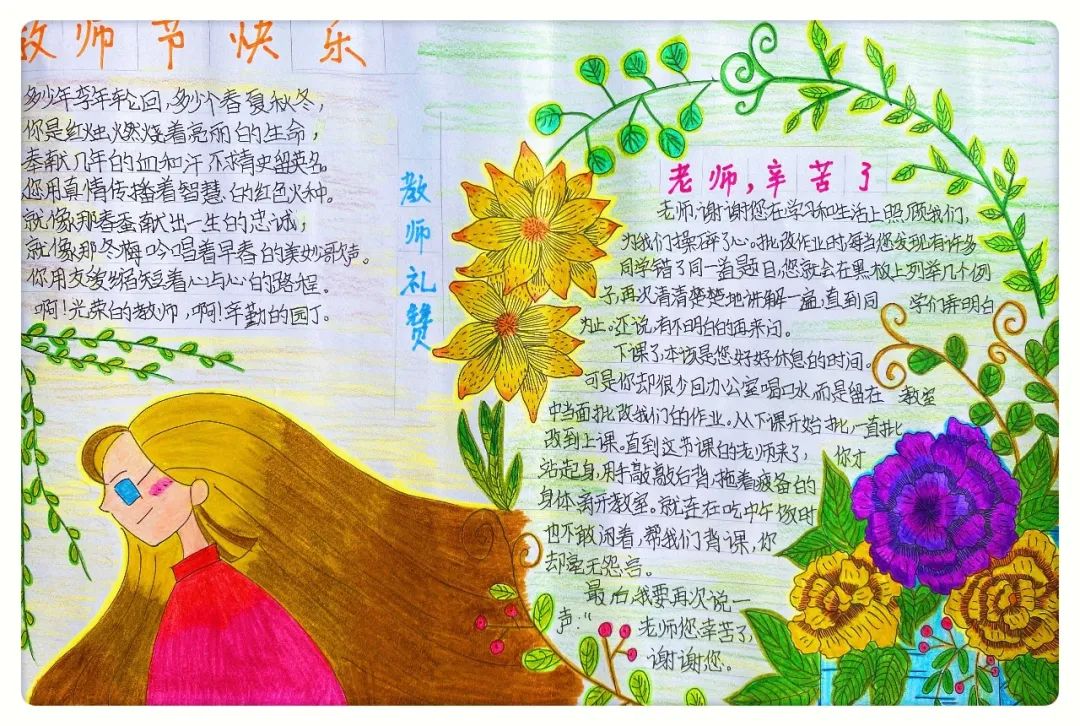 教师节快乐
多少年季年轮回,多少个春夏秋冬,
你是红烛燃烧着亮丽的生命,
奉献几年的血和汗不求青史留英名。
您用真情传播着智慧的红色火种。
就像那春蚕献出一生的忠诚;
就像那冬梅吟唱着早春的美妙歌声。
你用爱缩短着心与心的路程。
啊!光荣的教师,啊!辛勤的园丁。
教师礼赞
老师,辛苦了
老师,谢谢您在学习和生活上照顾我们,
为我们操碎了心。批改作业时,每当您发现有许多
同学错了同一道题目,您就会在黑板上列举几个例
子,再次清清楚楚地讲解一遍,直到同学们弄明白
为止。还说,有不明白的再来问。
下课了,本该是您好好休息的时间。
可是你却很少回办公室喝口水,而是留在教室
中当面批改我们的作业。从下课开始批,一直批
改到上课。直到这节课的老师来了,你才
站起身,用手敲敲后背,拖着疲备的
身体离开教室。就连在吃中午饭时
也不敢闲着,帮我们背课,你
却毫无怨言。
最后,我要再次说一
声:“老师您幸苦了,
谢谢您。